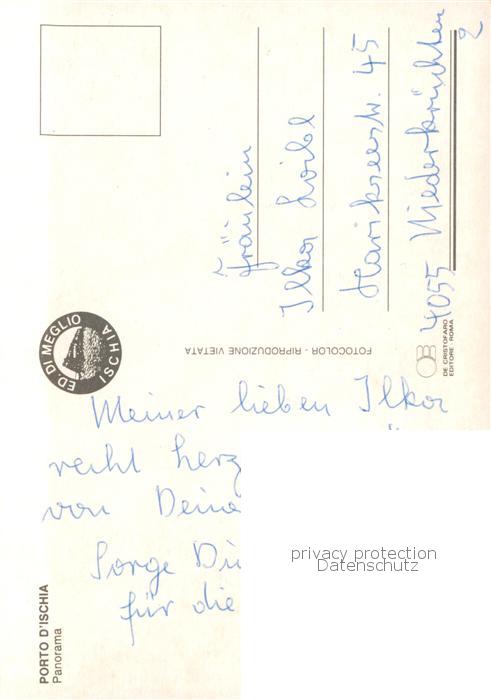 Fräulein
Ilka Loibl
Harikseestr. 45
4055 Niederkrüchten
2
ED. DI MEGLIO
ISCHIA
FOTOCOLOR - RIPRODUZIONE VIETATA
DE CRISTOFARO
EDITORE - ROMA
Meiner lieben Ilka
recht herz
von Deine
Sorge Di
für die
privacy protection
Datenschutz
PORTO D'ISCHIA
Panorama